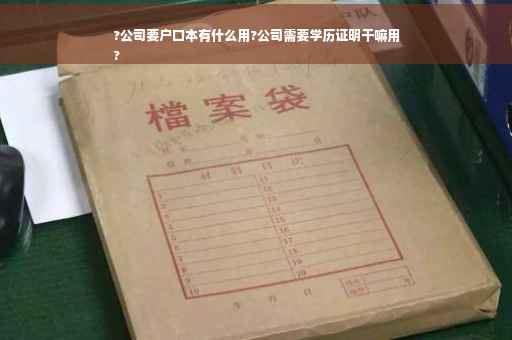 ?公司要户口本有什么用?公司需要学历证明干嘛用
?
檔案袋
材料目次
1 11
2 12
3 13
4 14
5 15
6 16
7 17
8 18
9 19
10 20
年 月 日